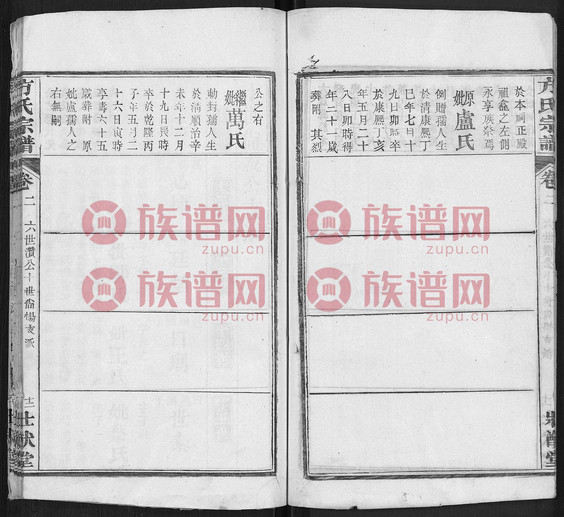 方氏宗譜
卷二
於本祠正殿
祖龕之左側
永享族祭焉
原妣盧氏
例贈孺人生
於清康熙丁
巳年七月十
九日卯時卒
於康熙丁亥
年五月二十
八日卯時得
年三十一歲
葬附
公之右
繼妣萬氏
勅封孺人生
於清順治辛
未年十二月
十九日辰時
卒於乾隆丙
子年五月二
十六日寅時
享壽六十五
歲葬附原
妣盧孺人之
右無嗣
方氏宗譜
卷二
六世讚公十世
士
壯猷堂
族谱网
zupu.cn
族谱网
zupu.cn
族谱网
zupu.cn
族谱网
zupu.cn